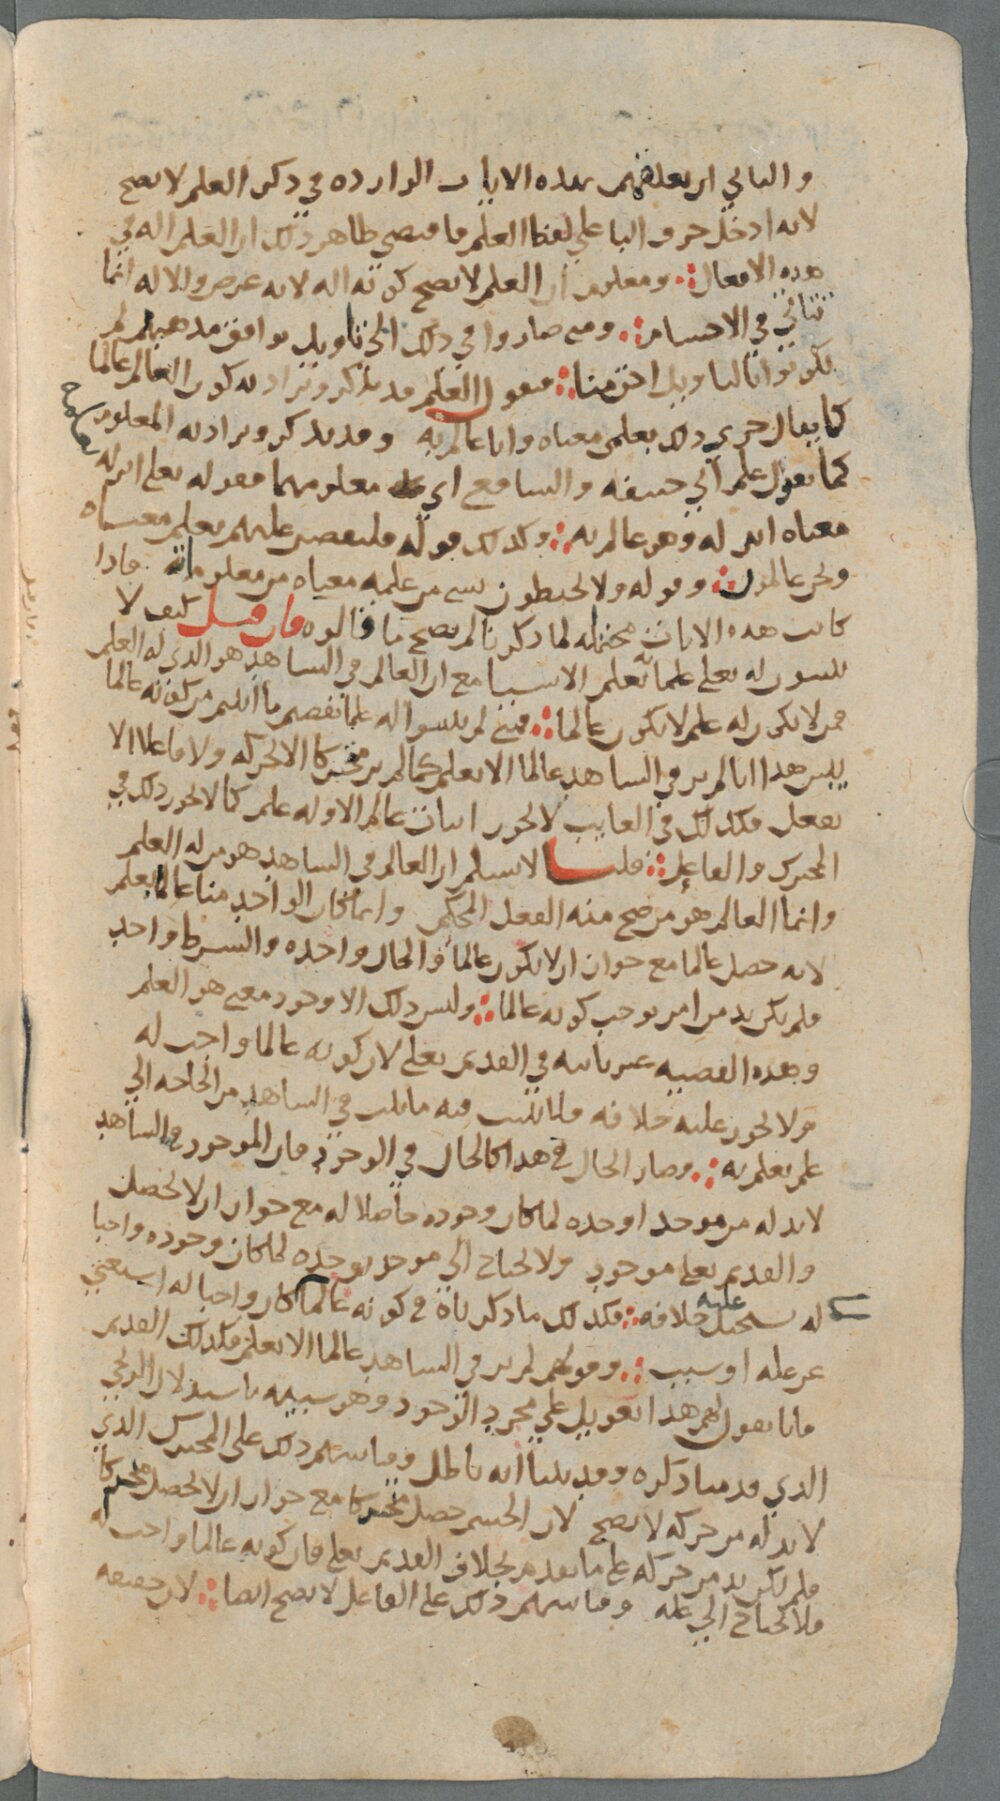 والثاني ان تعلقهم بهذه الايات الوارده في ذكر العلم لا يصح
لانه ادخل حرف البا على لفظ العلم فاقتضى ظاهر ذلك ان العلم اله في
هذه الافعال ومعلوم ان العلم لا يصح كونه اله لانه عرض والاله انما
تتاتي في الاجسام ومتى صاروا في ذلك الى تاويل يوافق مذهبهم لم
يكونوا بالتاويل احق منا فنقول العلم قد يذكر ويراد به كون العالم عالما
كما يقال جرى ذلك بعلمي معناه وانا عالم به وقد يذكر ويراد به المعلوم
كما يقول علم ابي حنيفه والشافعي اي معلومهما فقوله تعلى انزله بعلمه
معناه انزله وهو عالم به وكذلك قوله فلنقصن عليهم بعلم معناه
ونحن عالمون وقوله ولا يحيطون بشي من علمه معناه من معلوماته فاذا
كانت هذه الايات محتمله لما ذكرنا لم يصح ما قالوه فان قيل كيف لا
تثبتون له تعلى علما يعلم الاشيا مع ان العالم في الشاهد هو الذي له العلم
فمن لا يكون له علم لا يكون عالما فمتى لم تثبتوا له علما نقضتم ما اثبتم من كونه عالما
يبين هذا انا لم نر في الشاهد عالما الا بعلم كما لم نر متحركا الا بحركه ولا فاعلا الا
بفعل فكذلك في الغايب لا يجوز اثبات عالم الا وله علم كما لا يجوز ذلك في
المحرك والفاعل قلنا لا نسلم ان العالم في الشاهد هو من له العلم
وانما العالم هو من صح منه الفعل المحكم وانما كان الواحد منا عالما بعلم
لانه حصل عالما مع جواز ان لا يكون عالما والحال واحده والشرط واحد
فلم يكن بد من امر يوجب كونه عالما وليس ذلك الا وجود معنى هو العلم
وهذه القضيه غير ثابته في القديم تعلى لان كونه عالما واجب له
ولا يجوز عليه خلافه فلا يثبت فيه ما يثبت في الشاهد من الحاجه الى
علم يعلم به وصار الحال في هذا كالحال في الوجود فان الموجود في الشاهد
لا بد له من موجد اوجده لما كان وجوده حاصلا له مع جواز ان لا يحصل
والقديم تعلى موجود ولا يحتاج الى موجد يوجده لما كان وجوده واجبا
له يستحيل عليه خلافه فكذلك ما ذكرناه في كونه عالما لما كان واجبا له استغنى
عن عله او سبب وقولهم لم نر في الشاهد عالما الا بعلم فكذلك القديم
فانا نقول لهم هذا تعويل على مجرد الوجود وهو شبيه باستدلال الزنجي
الذي قدمنا ذكره وقد بينا انه باطل وقياسهم ذلك على المحرك الذي
لا بد له من حركه لا يصح لان الجسم حصل متحركا مع جواز ان لا يحصل متحركا
فلم يكن بد من حركه على ما تقدم بخلاف القديم تعلى فان كونه عالما واجب له
فلا يحتاج الى عله وقياسهم ذلك على الفاعل لا يصح ايضا لان حقيقه